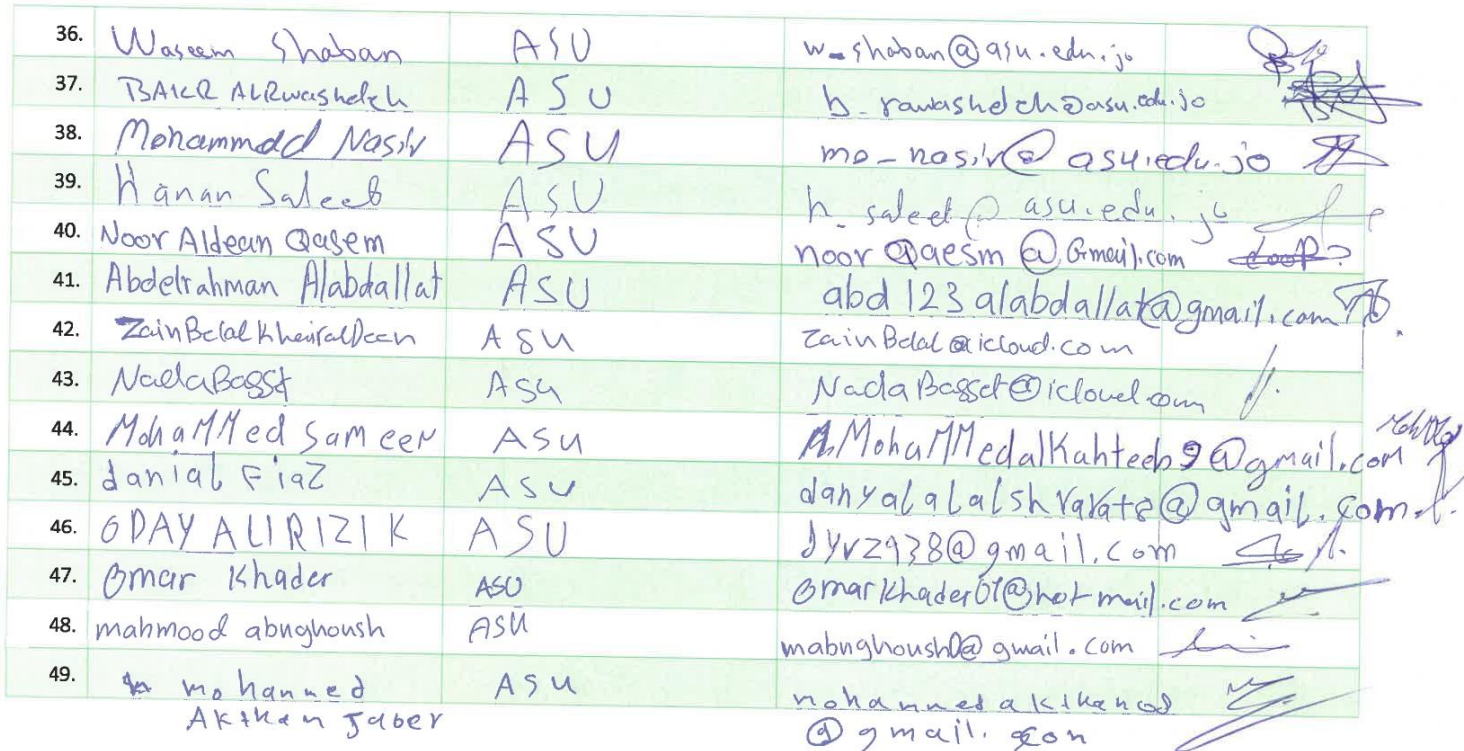 36. Waseem Shaban ASU w_shaban@asu.edu.jo
37. BAKR ALRwashdeh ASU b_rawashdeh@asu.edu.jo
38. Mohammad Nasir ASU mo_nasir@asu.edu.jo
39. Hanan Saleeb ASU h_saleeb@asu.edu.jo
40. Noor Aldean Qasem ASU noorQaesm@Gmail.com
41. Abdelrahman Alabdallat ASU abd123alabdallat@gmail.com
42. Zain Belal KheiralDeen ASU ZainBelal@icloud.com
43. Nada Basset ASU NadaBasset@icloud.com
44. MohaMMed Sameer ASU MohaMMedalKahteeb9@gmail.com
45. danial Fiaz ASU
46. ODAY ALI RIZIK ASU
47. Omar Khader ASU OmarKhader01@hotmail.com
48. mahmood abughoush ASU mabughoush0@gmail.com
49. mohanned ASU
Jaber @gmail.com